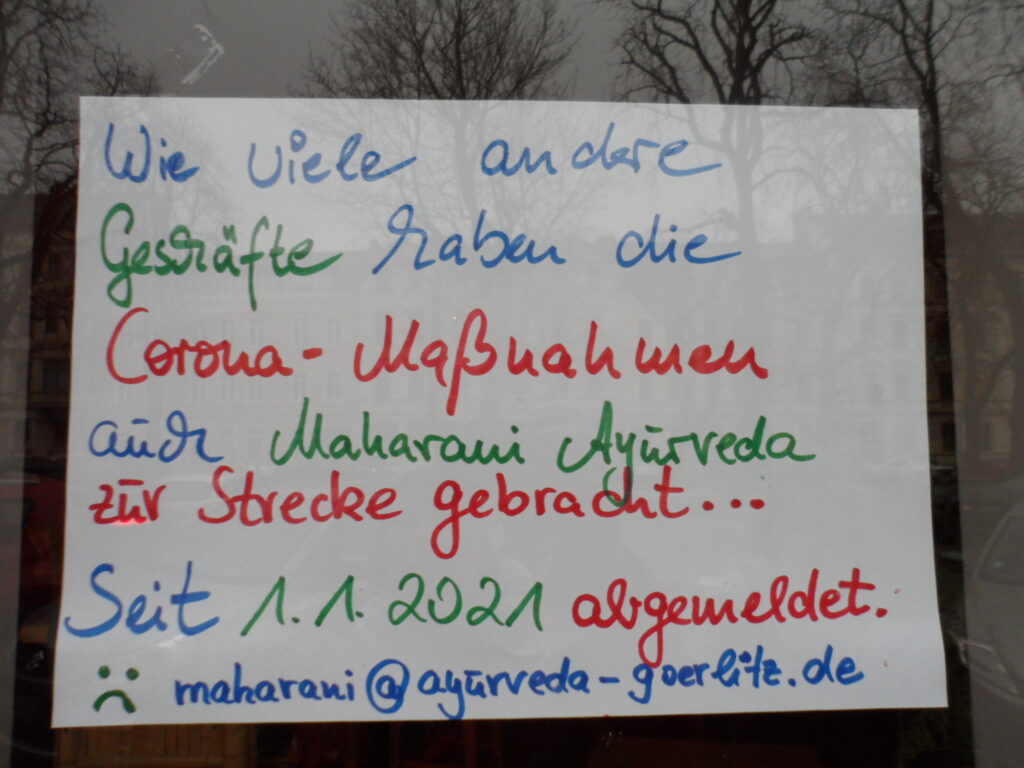 Wie viele andere
Geschäfte haben die
Corona-Maßnahmen
auch Maharani Ayurveda
zur Strecke gebracht...
Seit 1.1.2021 abgemeldet.
maharani@ayurveda-goerlitz.de